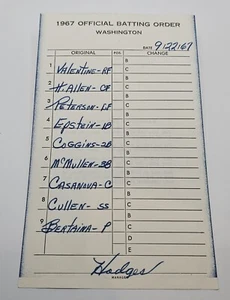 1967 OFFICIAL BATTING ORDER
WASHINGTON
DATE 9/22/67
ORIGINAL POS. CHANGE
1 VALENTINE-RF B
C
2 H. ALLEN-CF B
C
3 PETERSON-LF B
C
4 EPSTEIN-1B B
C
5 COGGINS-2B B
C
6 McMULLEN-3B B
C
7 CASANOVA-C B
C
8 CULLEN-SS B
C
9 BERTAINA-P B
C
D
E
Hodges
MANAGER